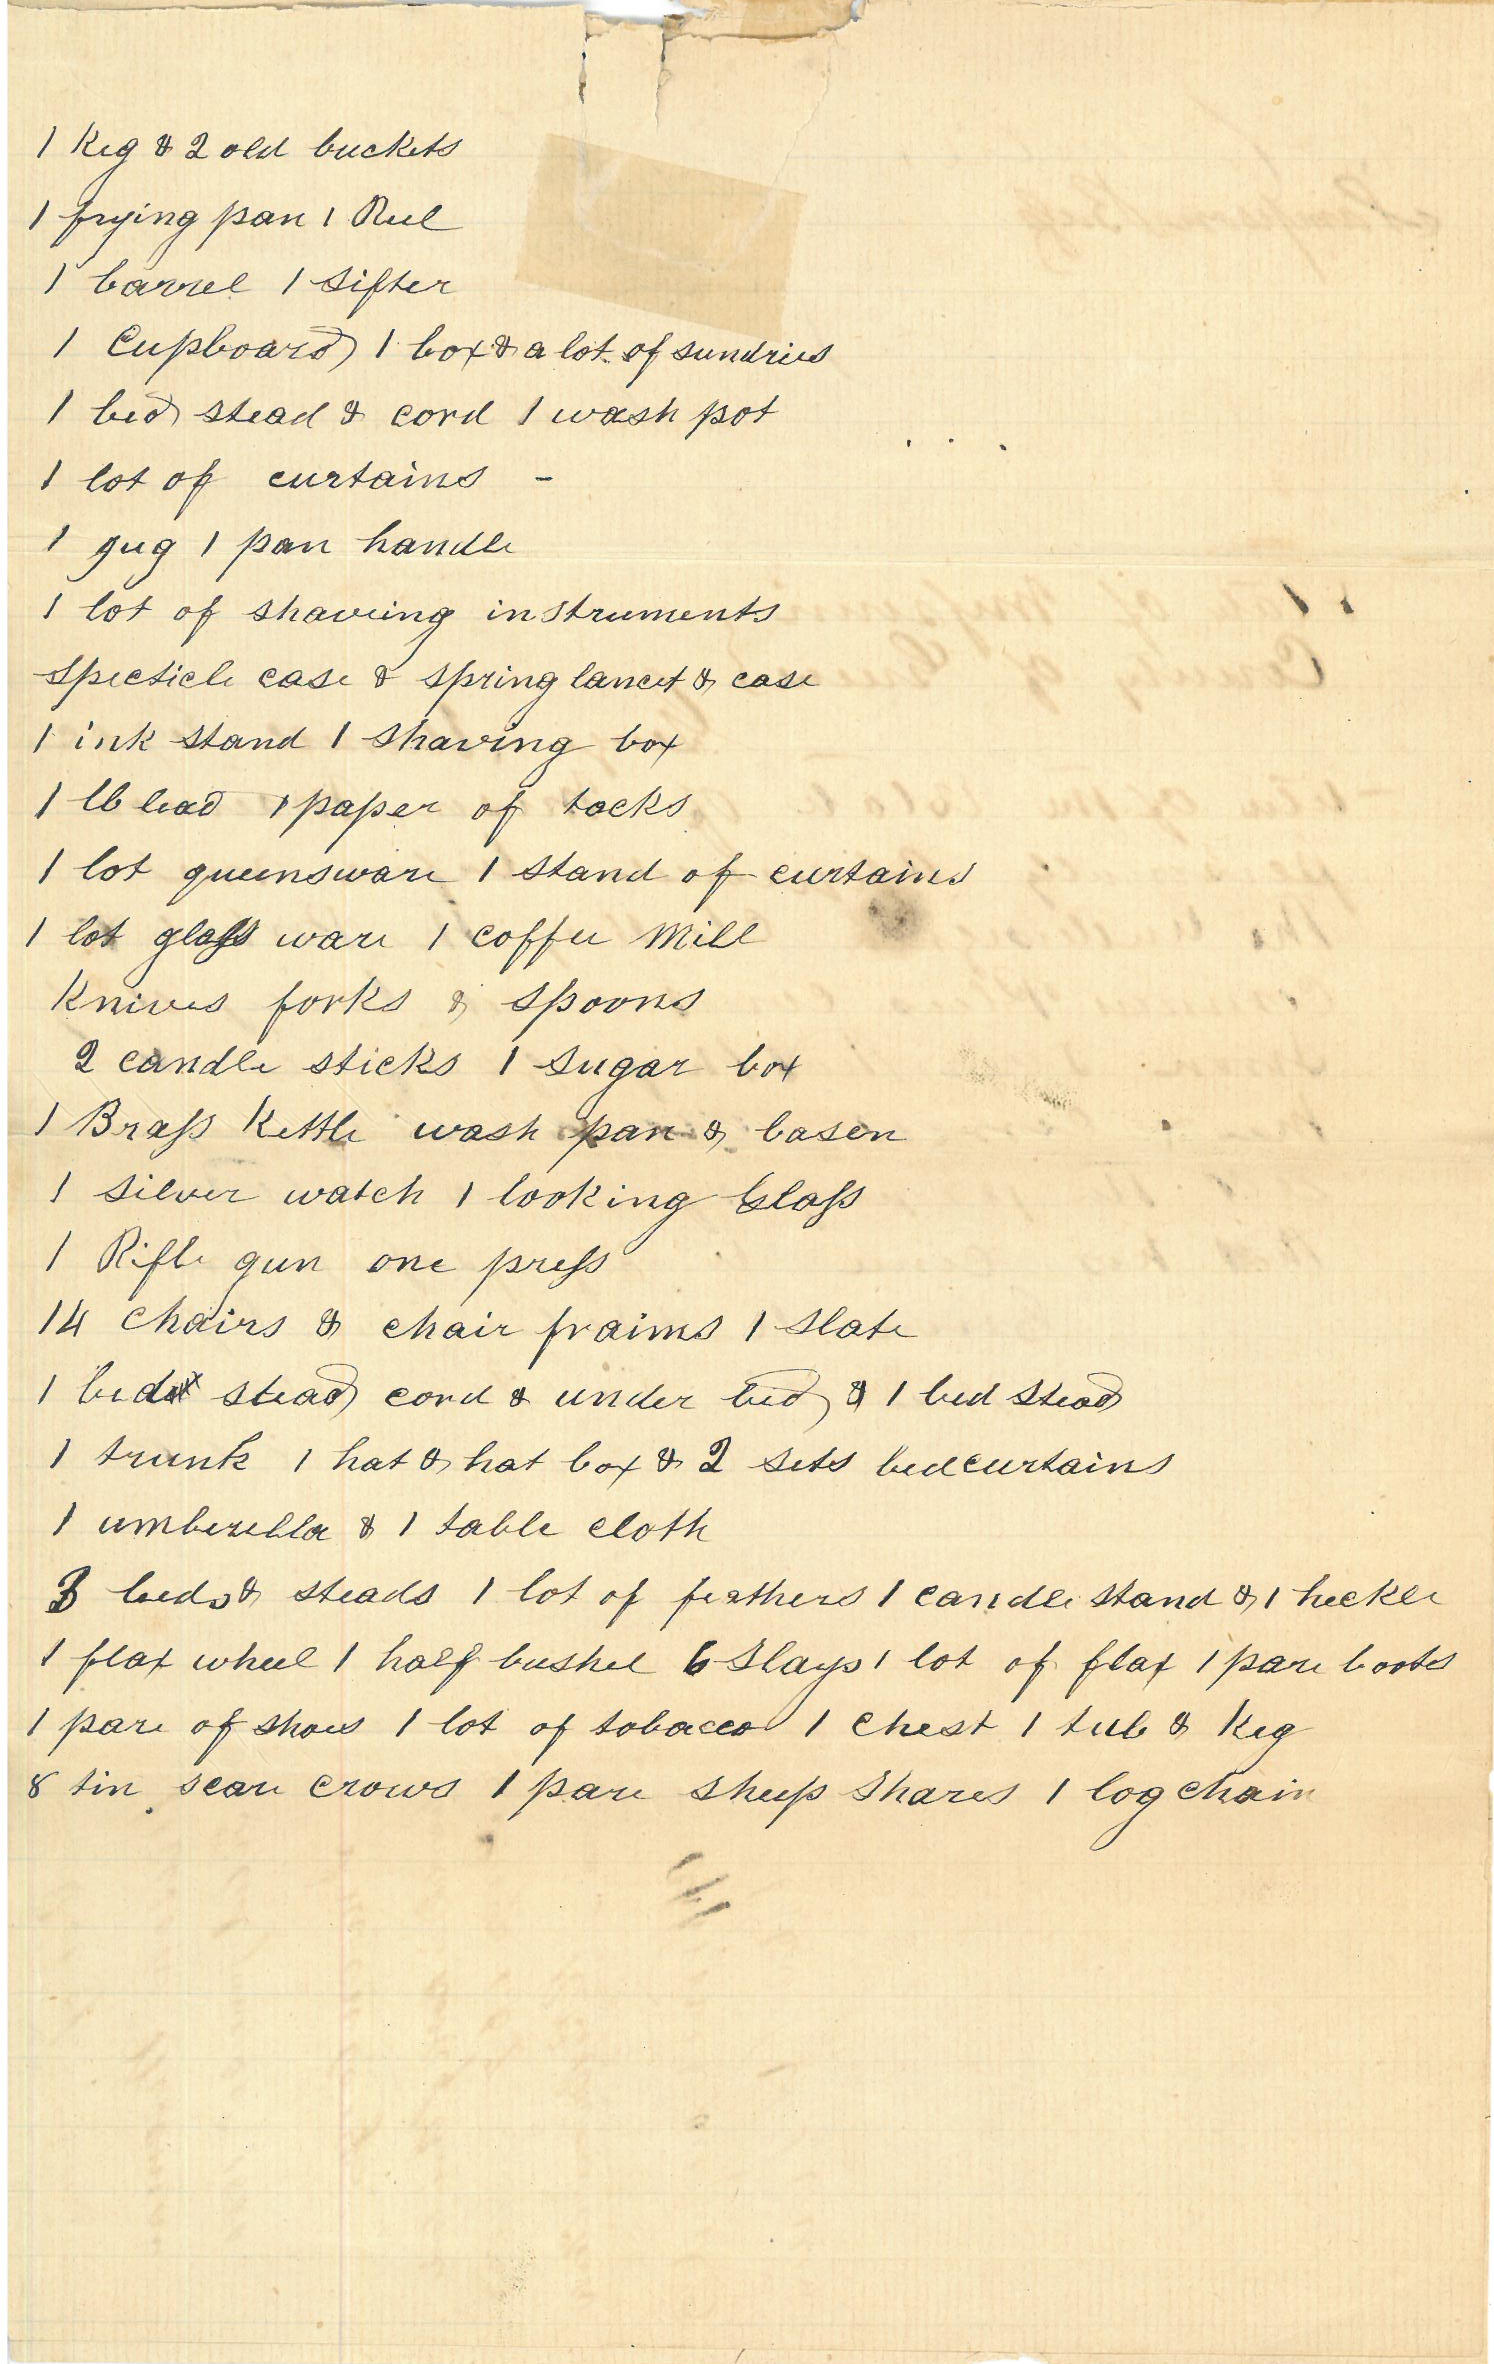 1 Keg & 2 old buckets
1 frying pan 1 Reel
1 barrel 1 sifter
1 Cupboard 1 box & a lot of sundries
1 bed stead & cord 1 wash pot
1 lot of curtains -
1 gug 1 pan handle
1 lot of shaveing instruments
specticle case & spring lancet & case
1 ink stand 1 shaving box
1 lb lead 1 paper of tacks
1 lot queensware 1 stand of curtains
1 lot glass ware 1 coffee Mill
Knives forks & spoons
2 candle sticks 1 sugar box
1 Brass Kettle wash pan & basen
1 silver watch 1 looking Glass
1 Rifle gun one press
14 chairs & chair fraims 1 slate
1 bed stead cord & under bed & 1 bed stead
1 trunk 1 hat & hat box & 2 sets bedcurtains
1 umberella & 1 table cloth
3 beds & steads 1 lot of feathers 1 candle stand & 1 heckle
1 flax wheel 1 half bushel 6 Slays 1 lot of flax 1 pare boots
1 pare of shoes 1 lot of tobacco 1 chest 1 tub & Keg
8 tin scare crows 1 pare sheep shares 1 log chain